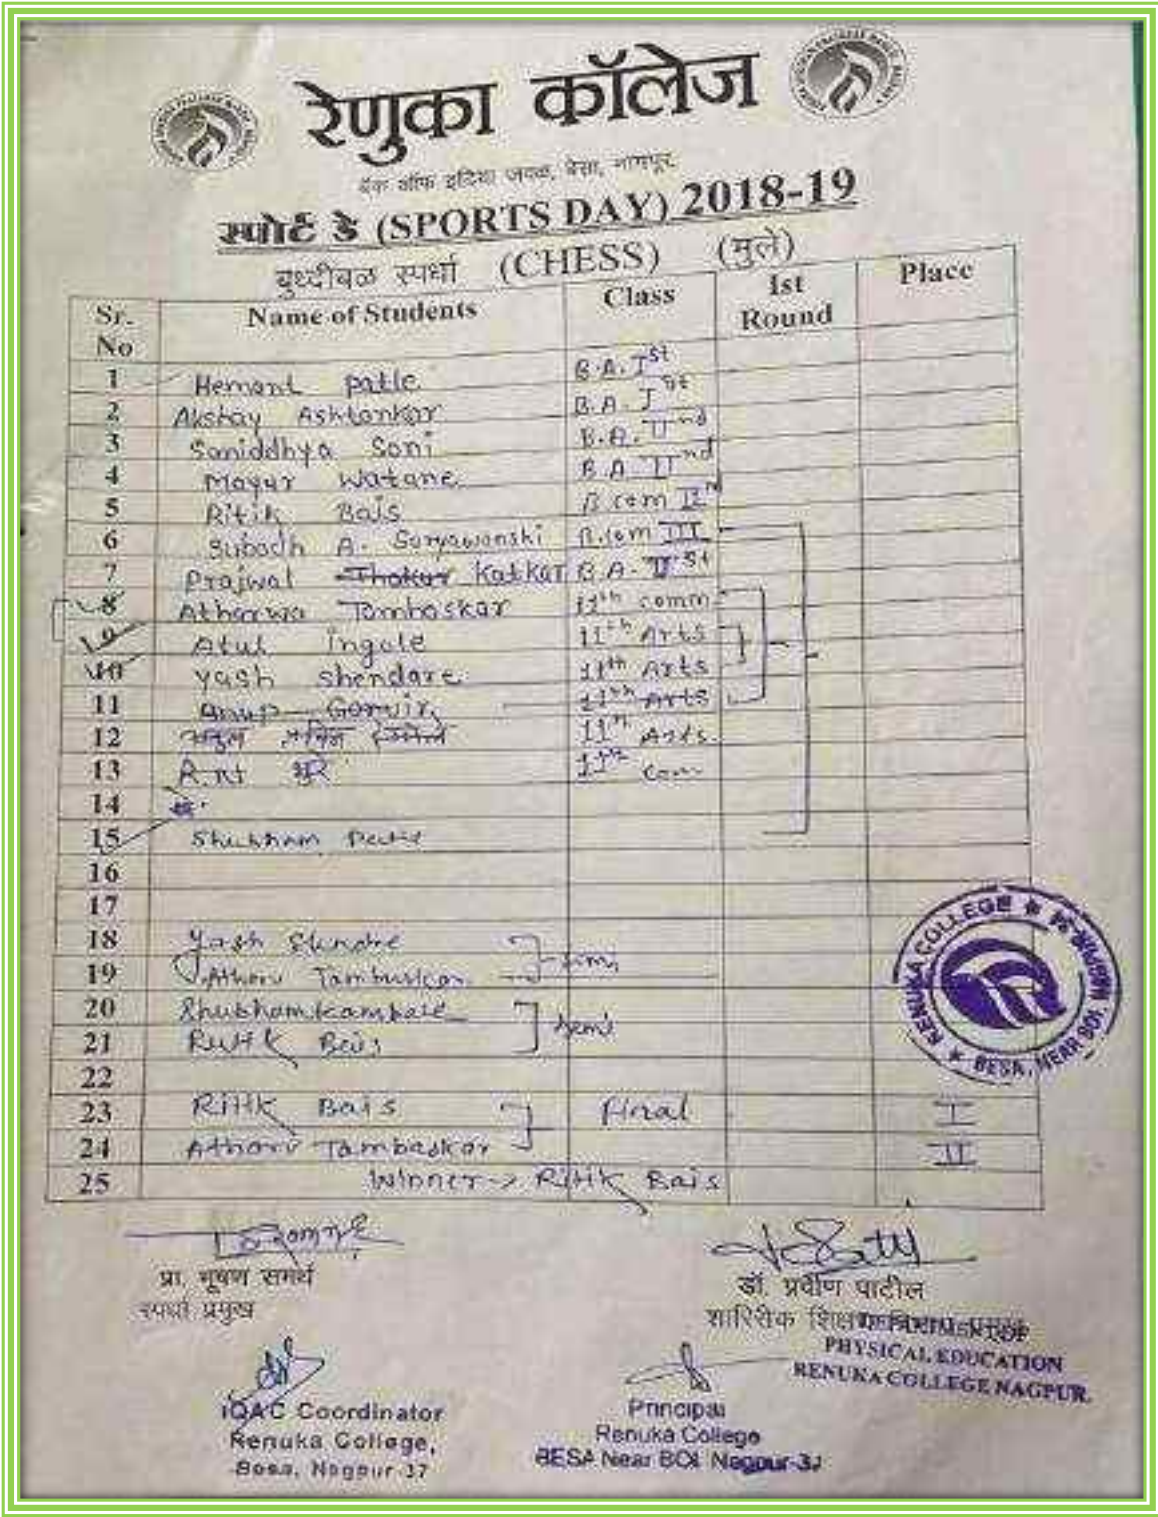 रेणुका कॉलेज
बँक ऑफ इंडिया जवळ, बेसा, नागपूर
स्पोर्ट डे (SPORTS DAY) 2018-19
बुध्दीबळ स्पर्धा (CHESS) (मुले)
Sr. No Name of Students Class 1st Round Place
1 Hemant Patle B.A. Ist
2 Akshay Ashtankar B.A. Ist
3 Saniddhya Soni B.A. IInd
4 Mayur Watane B.A IInd
5 Ritik Bais B com IInd
6 Subodh A. Suryawanshi B.com III
7 Prajwal Thakur Katkar B.A.
8 Atharwa Tambaskar 11th comm
9 Atul Ingole 11th Arts
10 Yash Shendare 11th Arts
11 Anup 11th Arts
12 11th Arts
13 11th Com
14
15 Shubham
16
17
18 Yash semi
19 Atharv Tambuskar
20 Shubham kamble semi
21 Rutik Bais
22
23 Ritik Bais Final I
24 Atharv Tambaskar II
25 Winner -> Ritik Bais
RENUKA COLLEGE
BESA, NEAR BOI, NAGPUR
प्रा. भूषण समर्थ
स्पर्धा प्रमुख
डॉ. प्रवीण पाटील
शारिरीक शिक्षण
DEPARTMENT OF
PHYSICAL EDUCATION
RENUKA COLLEGE NAGPUR.
IQAC Coordinator
Renuka College,
Besa, Nagpur-37
Principal
Renuka College
BESA Near BOI, Nagpur-37